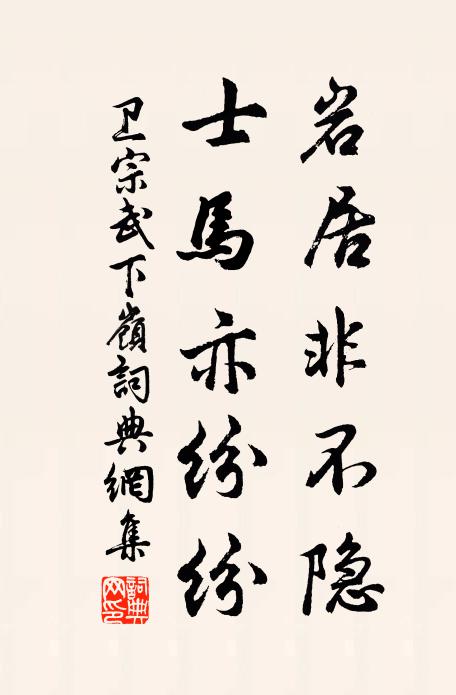 岩居非不隐
士馬亦纷纷
卫宗武下嶺詞典網集
詞典網印